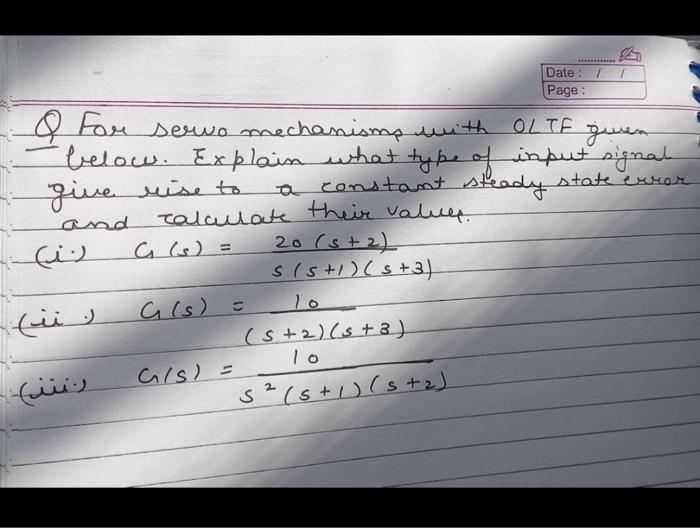 Date: / /
Page:
Q For servo mechanisms with OLTF given
below. Explain what type of input signal
give rise to a constant steady state error
and calculate their values.
(i.) G(s) = 20(s+2)
s(s+1)(s+3)
(ii.) G(s) = 10
(s+2)(s+3)
(iii.) G(s) = 10
s²(s+1)(s+2)